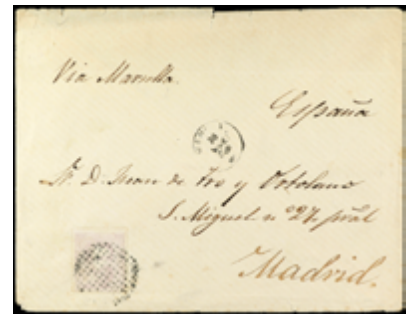 Via Marsella.
España
Sr. D. Juan de Tro y Ortolano
S. Miguel n.º 27. pral
Madrid.